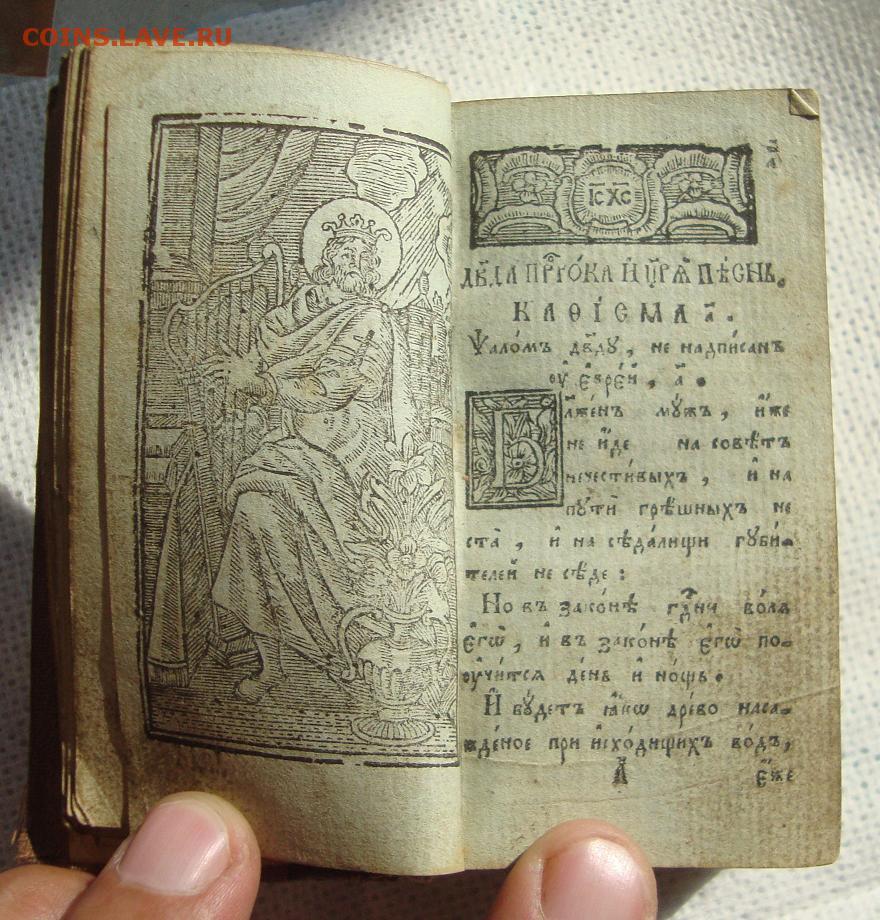 COINS.LAVE.RU
І҃С Х҃С
Дв҃да прⷪ҇рока и҆ цр҃ѧ̀ пѣснь.
Каѳісма а҃.
Ѱало́мъ дв҃ду, не надписанъ
оу҆ є҆врє́й, а҃.
Блаже́нъ мꙋ́жъ, и҆́же
не и҆́де на совѣ́тъ
нечести́выхъ, и҆ на
пꙋти̑ грѣ́шныхъ не
ста̀, и҆ на сѣда́лищи гꙋби́-
телей не сѣ́де:
Но въ зако́нѣ гдⷭ҇ни во́лѧ
є҆гѡ̀, и҆ въ зако́нѣ є҆гѡ̀ по-
оу҆чи́тсѧ де́нь и҆ но́щь.
И҆ бꙋ́детъ ꙗ҆́кѡ дре́во наса-
жде́ное при и҆схо́дищихъ во́дъ,
А҃
є҆́же